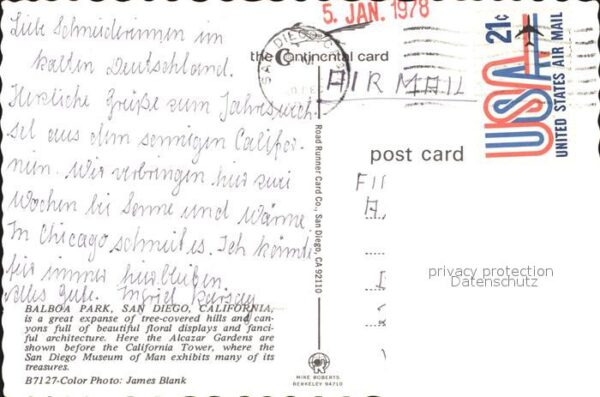 5. JAN. 1978
Liebe Schneiderinnen im
kalten Deutschland.
Herzliche Grüße zum Jahreswech-
sel aus dem sonnigen Califor-
nien. Wir verbringen hier zwei
Wochen bei Sonne und Wärme.
In Chicago schneit es. Ich könnte
für immer hierbleiben.
Alles Gute. Ingrid
the Continental card
SAN DIEGO, C
AIR MAIL
21c
USA
UNITED STATES AIR MAIL
post card
Road Runner Card Co., San Diego, CA 92110
privacy protection
Datenschutz
BALBOA PARK, SAN DIEGO, CALIFORNIA,
is a great expanse of tree-covered hills and can-
yons full of beautiful floral displays and fanci-
ful architecture. Here the Alcazar Gardens are
shown before the California Tower, where the
San Diego Museum of Man exhibits many of its
treasures.
B7127-Color Photo: James Blank
MIKE ROBERTS
BERKELEY 94710